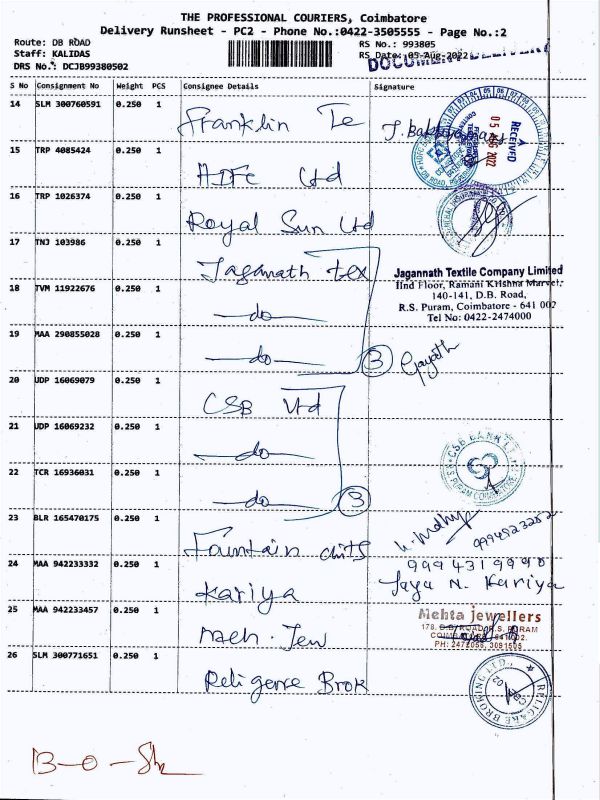 THE PROFESSIONAL COURIERS, Coimbatore
Delivery Runsheet - PC2 - Phone No.:0422-3505555 - Page No.:2
Route: DB ROAD
Staff: KALIDAS
DRS No.: DCJB99380502
RS No.: 993805
RS Date: 05-Aug-2022
S No Consignment No Weight PCS Consignee Details Signature
14 SLM 300760591 0.250 1 Franklin Te
RECEIVED
15 TRP 4085424 0.250 1 HDFC Ltd
16 TRP 1026374 0.250 1 Royal Sun Ltd
17 TNJ 103986 0.250 1 Jaganath tex
Jagannath Textile Company Limited
IInd Floor, Ramani Krishna Marvel,
140-141, D.B. Road,
R.S. Puram, Coimbatore - 641 002
Tel No: 0422-2474000
18 TVM 11922676 0.250 1 do
19 MAA 290855028 0.250 1 do 3 Gayath
20 UDP 16069079 0.250 1 CSB Ltd
21 UDP 16069232 0.250 1 do
CSB BANK LT
22 TCR 16936031 0.250 1 do 3
23 BLR 165470175 0.250 1 Fountain chits
24 MAA 942233332 0.250 1 Kariya
Jaya N. Kariya
25 MAA 942233457 0.250 1 Meh. Jew
Mehta jewellers
178, D.B. ROAD, R.S. PURAM
26 SLM 300771651 0.250 1 Religerre Brok
RELIGARE BROKING LTD.
13-0-Sh